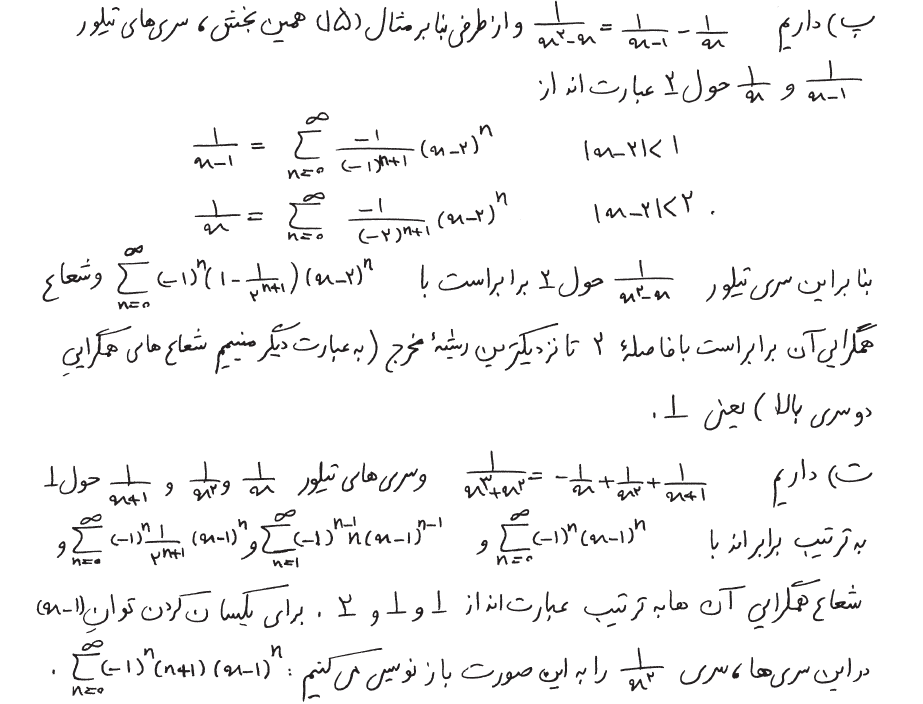 پ) داریم $\frac{1}{x^۲-x} = \frac{1}{x-1} - \frac{1}{x}$ و از طرفی بنا بر مثال (۱۵) همین بخش، سری‌های تیلور
$\frac{1}{x-1}$ و $\frac{1}{x}$ حول ۲ عبارت‌اند از
$\frac{1}{x-1} = \sum_{n=0}^{\infty} \frac{-1}{(-1)^{n+1}} (x-۲)^n \quad |x-۲|<1$
$\frac{1}{x} = \sum_{n=0}^{\infty} \frac{-1}{(-۲)^{n+1}} (x-۲)^n \quad |x-۲|<۲ .$
بنابراین سری تیلور $\frac{1}{x^۲-x}$ حول ۲ برابر است با $\sum_{n=0}^{\infty} (-1)^n (1-\frac{1}{۲^{n+1}}) (x-۲)^n$ و شعاع
همگرایی آن برابر است با فاصلهٔ ۲ تا نزدیکترین ریشهٔ مخرج (به عبارت دیگر مینیمم شعاع های همگرایی
دو سری بالا) یعنی ۱.
ت) داریم $\frac{1}{x^۳+x^۲} = -\frac{1}{x} + \frac{1}{x^۲} + \frac{1}{x+1}$ و سری‌های تیلور $\frac{1}{x}$ و $\frac{1}{x^۲}$ و $\frac{1}{x+1}$ حول ۱
به ترتیب برابراند با $\sum_{n=0}^{\infty} (-1)^n (x-1)^n$ و $\sum_{n=1}^{\infty} (-1)^{n-1} n (x-1)^{n-1}$ و $\sum_{n=0}^{\infty} (-1)^n \frac{1}{۲^{n+1}} (x-1)^n$ و
شعاع همگرایی آن ها به ترتیب عبارت‌اند از ۱ و ۱ و ۲. برای یکسان کردن توانِ (x-1)
در این سری‌ها، سری $\frac{1}{x^۲}$ را به این صورت بازنویس می‌کنیم: $\sum_{n=0}^{\infty} (-1)^n (n+1) (x-1)^n$ .